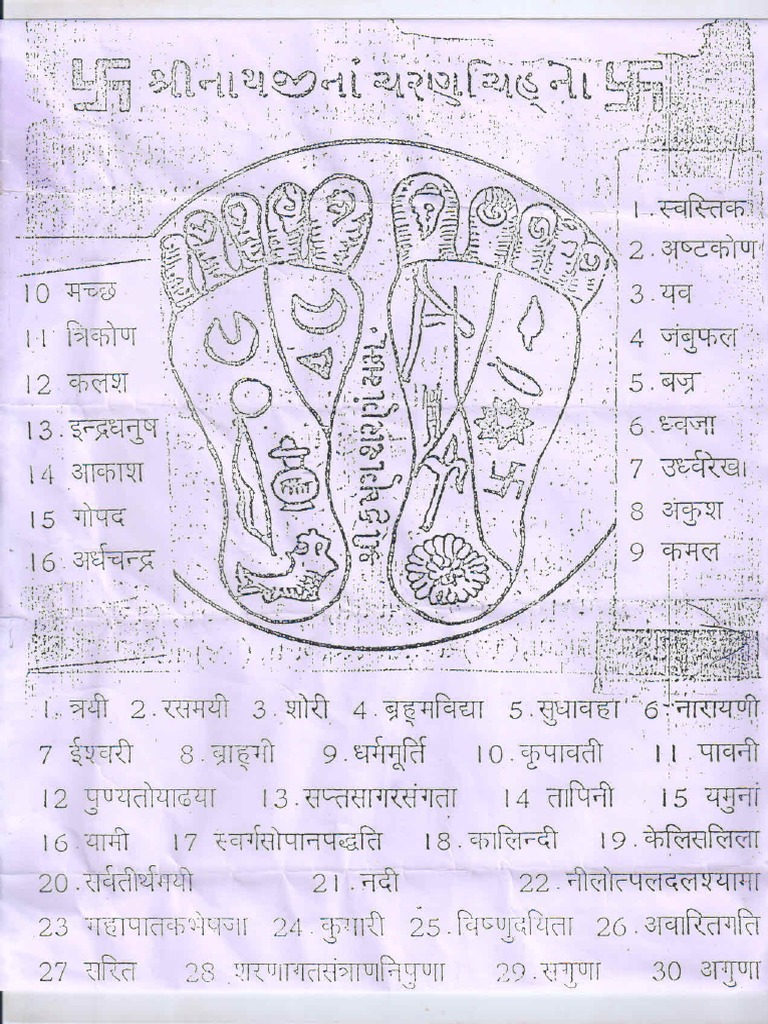 શ્રીનાથજીનાં ચરણચિહ્નો
1. स्वस्तिक
2. अष्टकोण
3. यव
4 जंबुफल
5. बज्र
6. ध्वजा
7 उर्ध्वरेखा
8 अंकुश
9 कमल
10 मच्छ
11 त्रिकोण
12 कलश
13. इन्द्रधनुष
14 आकाश
15 गोपद
16 अर्धचन्द्र
1. त्रयी 2. रसमयी 3. शोरी 4. ब्रह्मविद्या 5. सुधावहा 6. नारायणी
7 ईश्वरी 8. ब्राह्मी 9. धर्ममूर्ति 10. कृपावती 11. पावनी
12 पुण्यतोयाढया 13. सप्तसागरसंगता 14 तापिनी 15 यमुनां
16. यामी 17 स्वर्गसोपानपद्धति 18. कालिन्दी 19. केलिसलिला
20. सर्वतीर्थमयी 21. नदी 22. नीलोत्पलदलश्यामा
23 महापातकभेषजा 24. कुमारी 25. विष्णुदयिता 26. अवारितगति
27 सरित 28 शरणागतसंत्राणनिपुणा 29. सगुणा 30 अगुणा